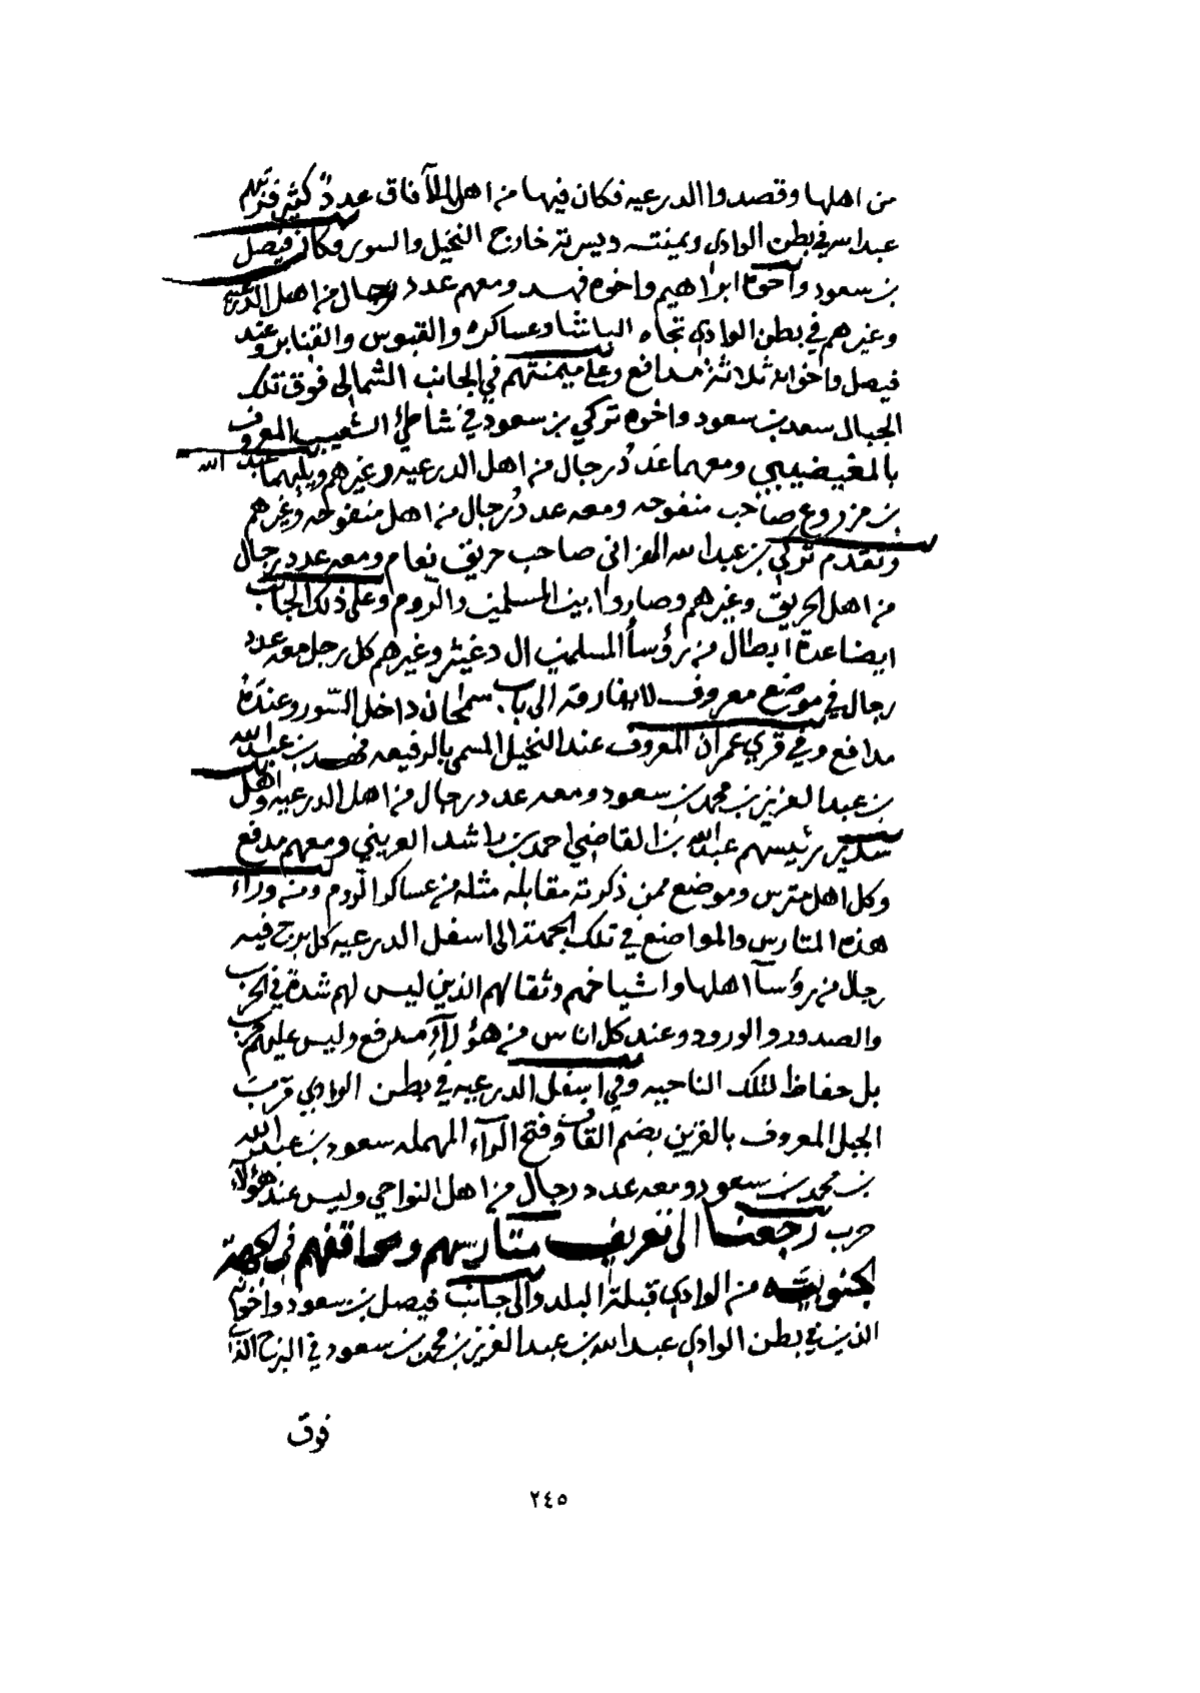 من اهلها وقصدوا الدرعيه فكان فيها من اهل الآفاق عددٌ كثير فرتبهم
عبدالله في بطن الوادي ويمنته ويسرته خارج النخيل والسور وكان فيصل
بن سعود واخوه ابراهيم واخوه فهد ومعهم عدد رجال من اهل الدرعيه
وغيرهم في بطن الوادي تجاه الباشا وعساكره والقبوس والقنابر وعند
فيصل واخوانه ثلاثة مدافع وعلى ميمنتهم في الجانب الشمالي فوق تلك
الجبال سعد بن سعود واخوه تركي بن سعود في شاطئ الشعيب المعروف
بالمغيضيبي ومعهما عَددُ رجال من اهل الدرعيه وغيرهم ويليهما عبد الله
بن مزروع صاحب منفوحه ومعه عددُ رجال من اهل منفوحه وغيرهم
وتقدم تركي بن عبدالله الهزاني صاحب حريق نعام ومعه عدد رجال
من اهل الحريق وغيرهم وصاروا بين المسلمين والروم وعلى ذلك الجانب
ايضا عدة ابطال من رؤسأ المسلمين ال دغيثر وغيرهم كل رجل معه عدد
رجال في موضع معروف لا يفارقه الى باب سمحان داخل السّور وعنده
مدافع وفي قري عمران المعروف عند النخيل المسمى بالرفيعه فهد بن عبدالله
بن عبدالعزيز بن محمد بن سعود ومعه عدد رجال من اهل الدرعيه واهل
سدير رئيسهم عبدالله بن القاضي احمد بن راشد العريني ومعهم مدفع
وكل اهل مترس وموضع ممن ذكرته مقابله مثله من عساكر الروم ومن وراء
هذه المتارس والمواضع في تلك الجهة الى اسفل الدرعيه كل برج فيه
رجال من رؤسآ اهلها واشياخهم وثقالهم الذين ليس لهم شدة في الحرب
والصدور والورود وعند كل اناس من هؤلآءِ مدفع وليس عليهم حرب
بل حفاظ لتلك الناحيه وفي اسفل الدرعيه في بطن الوادي قرب
الجبل المعروف بالقرين بضم القاف وفتح الرآء المهمله سعود بن عبدالله
بن محمد بن سعود ومعه عدد رجال من اهل النواحي وليس عند هؤلآء
حرب رجعنا الى تعريف متارسهم ومواقفهم في الجهة
الجنوبية من الوادي قبلة البلد والى جانب فيصل بن سعود واخوانه
الذين في بطن الوادي عبدالله بن عبدالعزيز بن محمد بن سعود في البرج الذي
فوق
٢٤٥